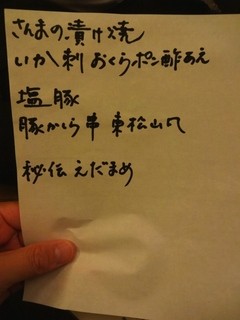 さんまの漬け焼
いか刺 おくらポン酢あえ
塩豚
豚かしら串 東松山
秘伝えだまめ